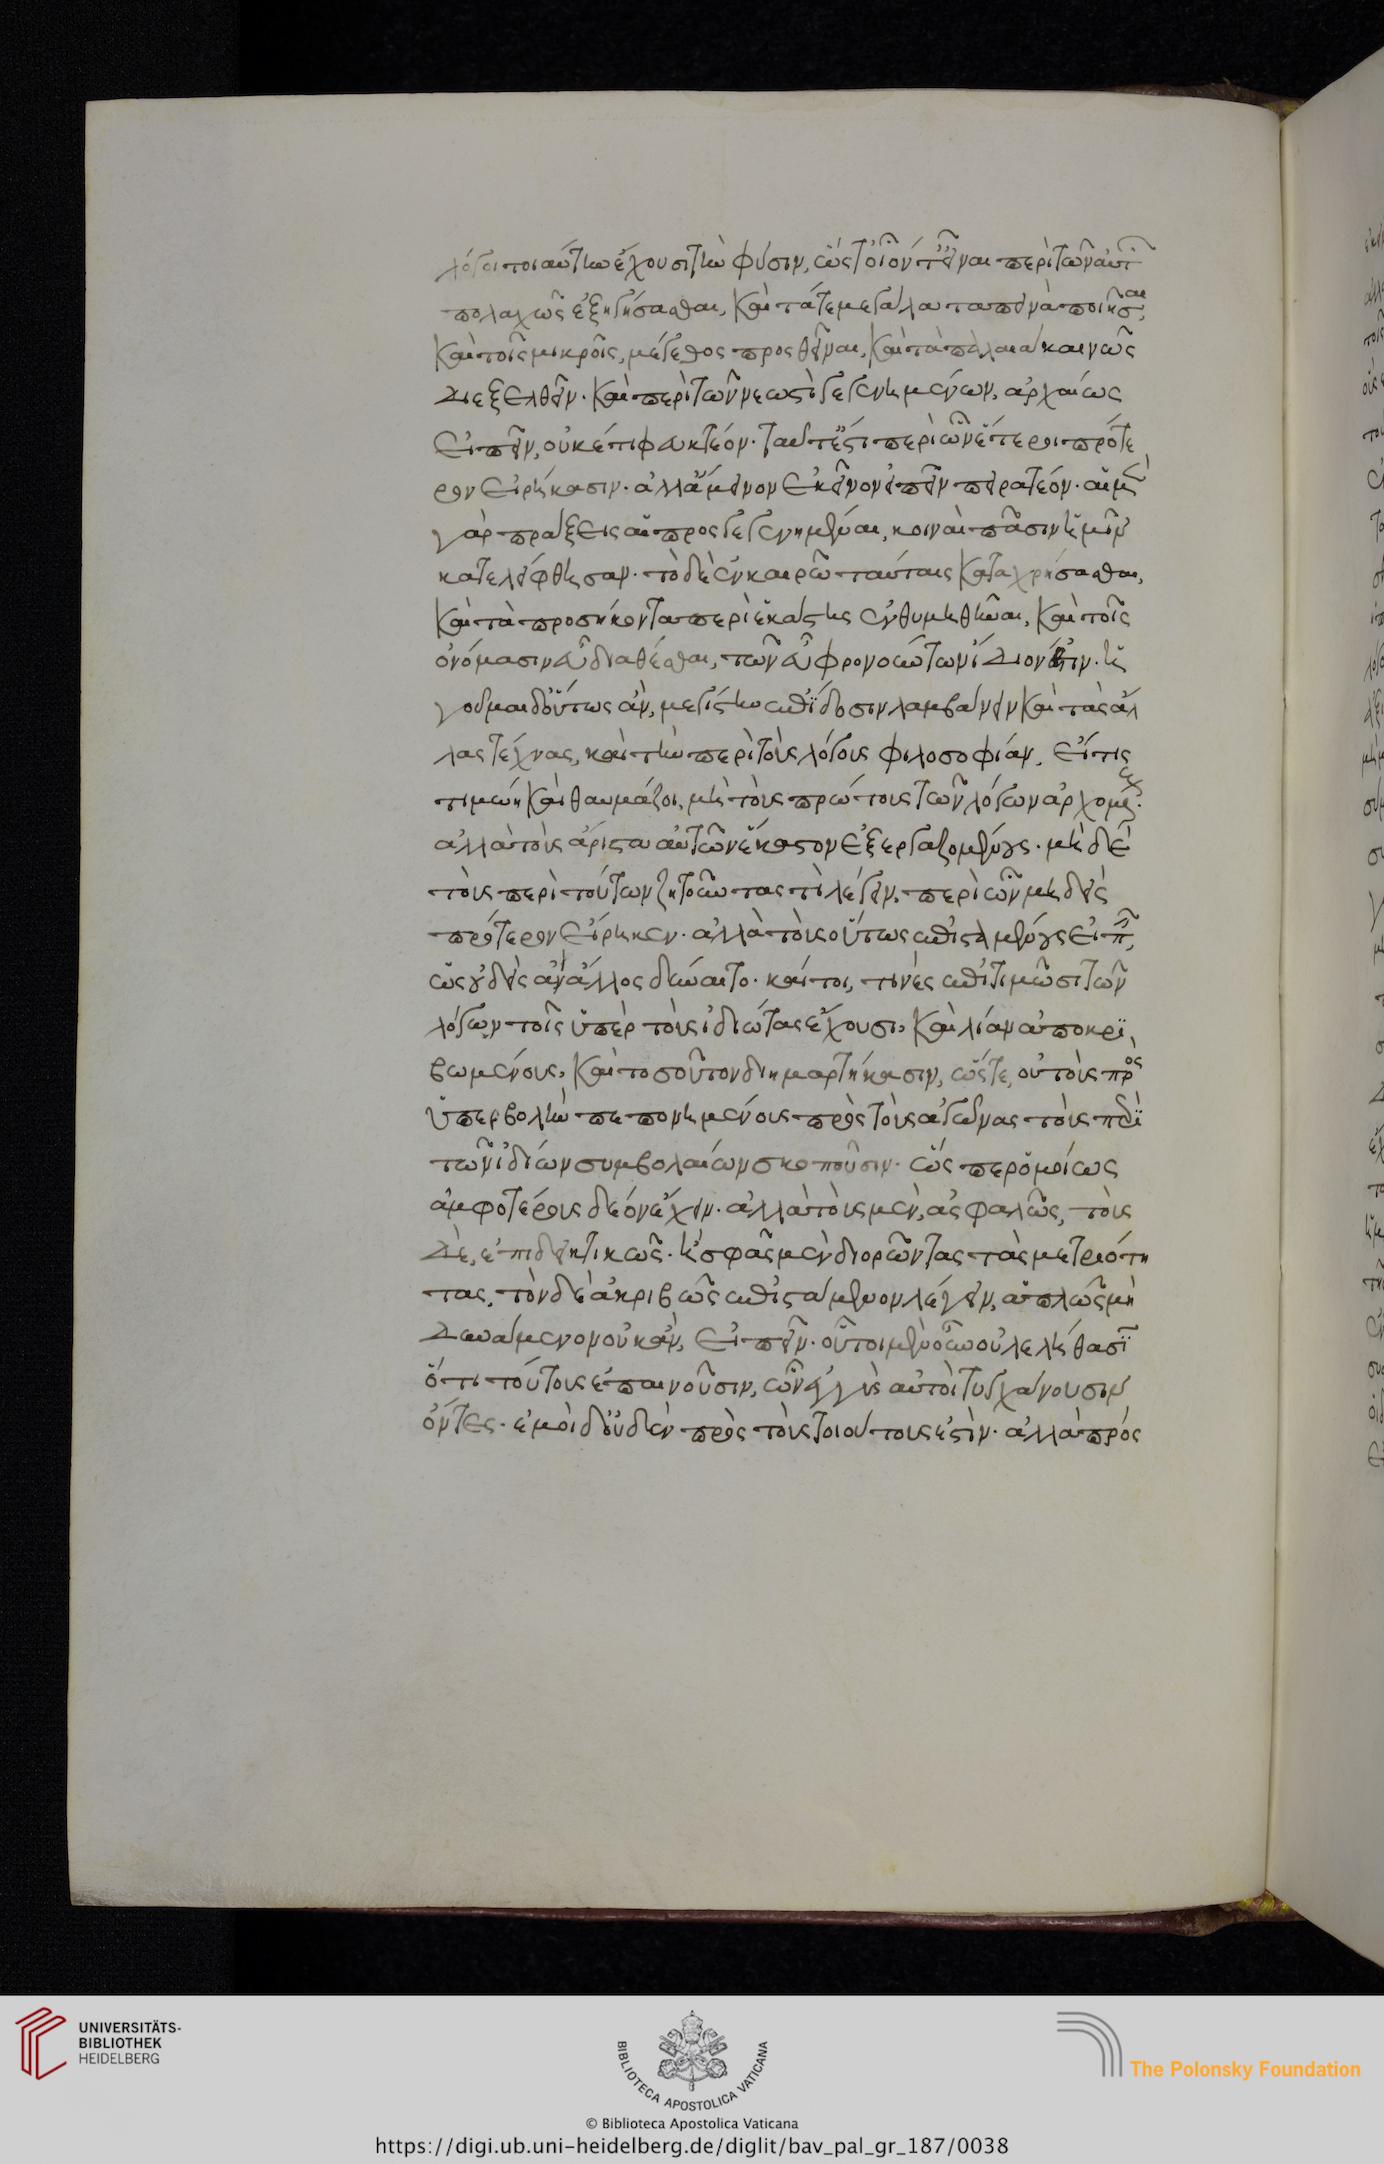 λόγοι τοιαύτην ἔχουσι τὴν φύσιν, ὥσθ' οἷόν τ' εἶναι περὶ τῶν αὐτῶν
πολλαχῶς ἐξηγήσασθαι, καὶ τά τε μεγάλα ταπεινὰ ποιῆσαι,
καὶ τοῖς μικροῖς, μέγεθος προσθεῖναι, καὶ τὰ παλαιὰ καινῶς
διεξελθεῖν. καὶ περὶ τῶν νεωστὶ γεγενημένων, ἀρχαίως
εἰπεῖν, οὐκέτι φευκτέον. ταῦτ' ἐστὶ περὶ ὧν ἕτεροι πρότε
ρον εἰρήκασιν. ἀλλ' ἄμεινον ἐκείνων εἰπεῖν πειρατέον. αἱ μὲν
γὰρ πράξεις αἱ προγεγενημέναι, κοιναὶ πᾶσιν ἡμῖν
κατελείφθησαν. τὸ δὲ ἐν καιρῷ ταύταις καταχρήσασθαι,
καὶ τὰ προσήκοντα περὶ ἑκάστης ἐνθυμηθῆναι, καὶ τοῖς
ὀνόμασιν εὖ διαθέσθαι, τῶν εὖ φρονούντων ἴδιόν ἐστιν. ἡ
γοῦμαι δ' οὕτως ἂν, μεγίστην ἐπίδοσιν λαμβάνειν καὶ τὰς ἄλ
λας τέχνας, καὶ τὴν περὶ τοὺς λόγους φιλοσοφίαν, εἴ τις
τιμῴη καὶ θαυμάζοι, μὴ τοὺς πρώτους τῶν λόγων ἀρχομένους.
ἀλλὰ τοὺς ἄριστα αὐτῶν ἕκαστον ἐξεργαζομένους. μὴ δὲ
τοὺς περὶ τούτων ζητοῦντας τι λέγειν, περὶ ὧν μηδεὶς
πρότερον εἴρηκεν. ἀλλὰ τοὺς οὕτως ἐπισταμένους εἰπεῖν,
ὡς οὐδεὶς ἂν ἄλλος δύναιτο. καίτοι, τινὲς ἐπιτιμῶσι τῶν
λόγων τοῖς ὑπὲρ τοὺς ἰδιώτας ἔχουσι, καὶ λίαν ἀπηκρι
βωμένοις, καὶ τοσοῦτον διημαρτήκασιν, ὥστε, οὐ τοὺς πρὸς
ὑπερβολὴν πεπονημένους πρὸς τοὺς ἀγῶνας τοὺς περὶ
τῶν ἰδίων συμβολαίων σκοποῦσιν. ὥσπερ ὁμοίως
ἀμφοτέρους δέον ἔχειν. ἀλλὰ τοὺς μὲν, ἀσφαλῶς, τοὺς
δὲ, ἐπιδεικτικῶς. ἢ σφᾶς μὲν διορῶντας τὰς μετριότη
τας, τὸν δὲ ἀκριβῶς ἐπιστάμενον λέγειν, ἁπλῶς μὴ
δυνάμενον οὐκ ἂν, εἰπεῖν. οὗτοι μὲν οὖν οὐ λελήθασιν
ὅτι τούτους ἐπαινοῦσιν, ὧν ἐγγὺς αὐτοὶ τυγχάνουσιν
ὄντες. ἐμοὶ δ' οὐδὲν πρὸς τοὺς τοιούτους ἐστὶν. ἀλλὰ πρὸς
UNIVERSITÄTS-
BIBLIOTHEK
HEIDELBERG
BIBLIOTECA APOSTOLICA VATICANA
The Polonsky Foundation
© Biblioteca Apostolica Vaticana
https://digi.ub.uni-heidelberg.de/diglit/bav_pal_gr_187/0038